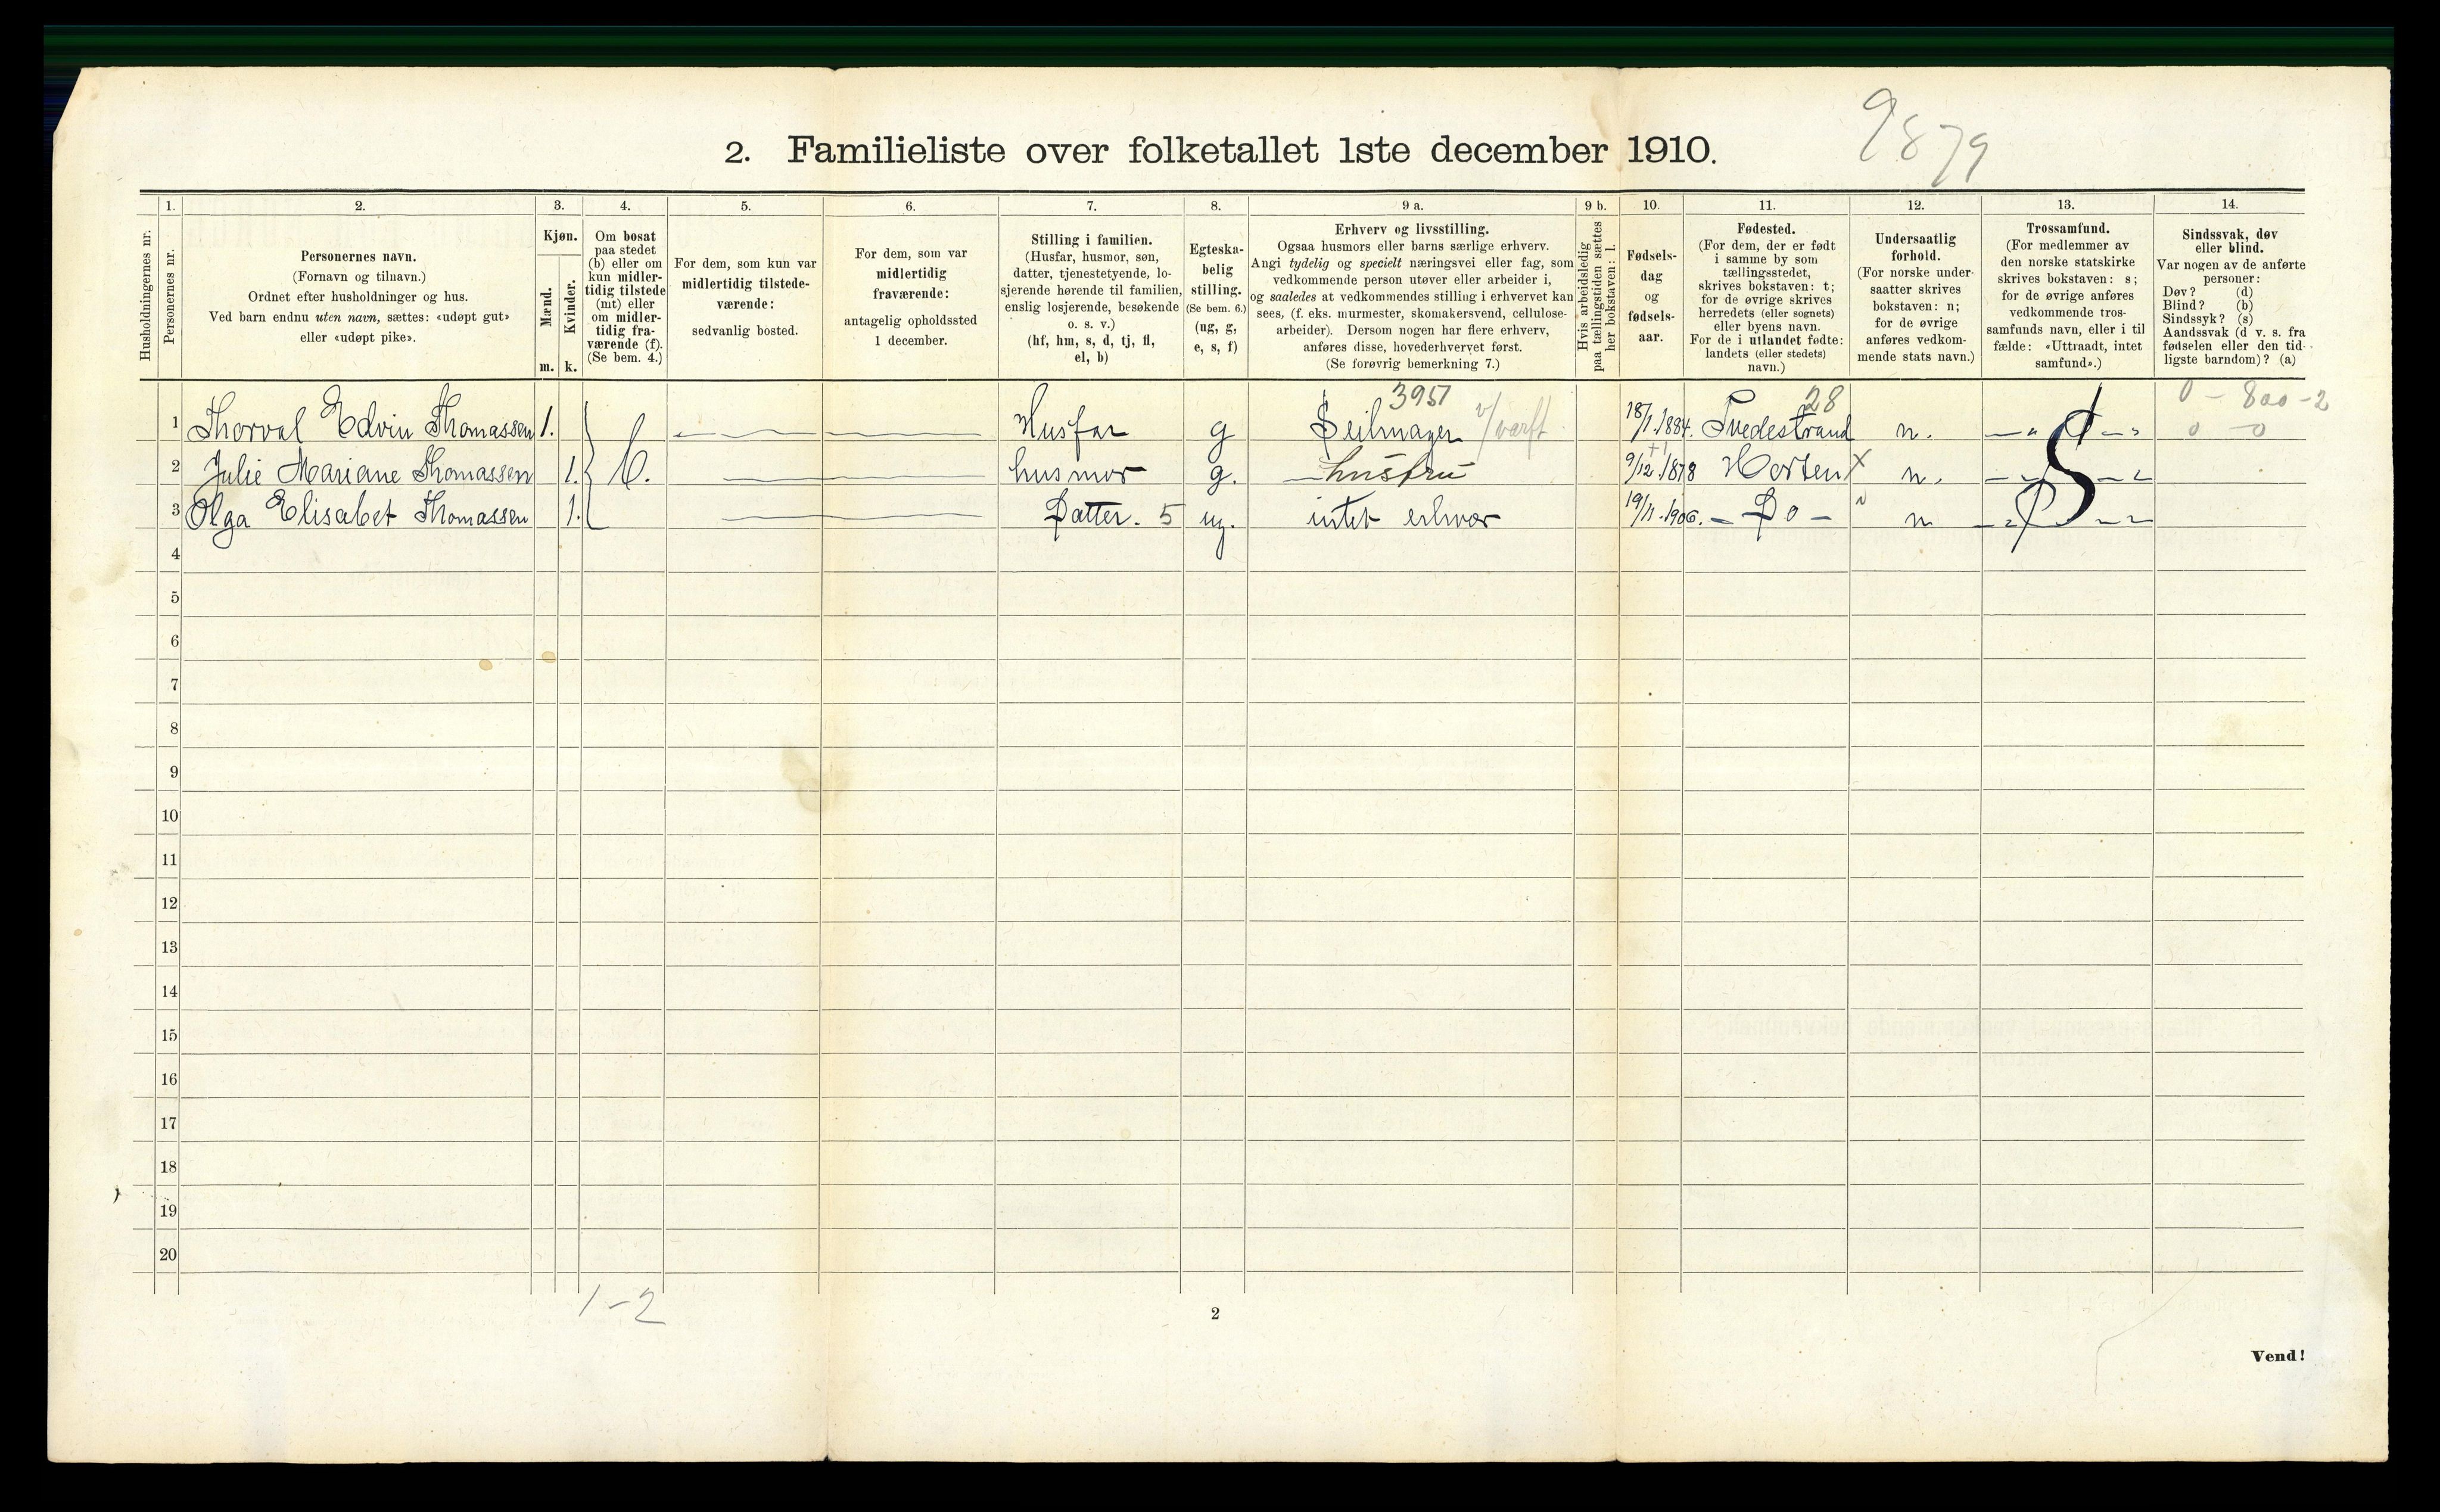 2. Familieliste over folketallet 1ste december 1910.
9879
Husholdningernes nr.
1.
Personernes nr.
2.
Personernes navn.
(Fornavn og tilnavn.)
Ordnet efter husholdninger og hus.
Ved barn endnu uten navn, sættes: «udøpt gut»
eller «udøpt pike».
3.
Kjøn.
Mænd.
Kvinder.
m. k.
4.
Om bosat
paa stedet
(b) eller om
kun midler-
tidig tilstede
(mt) eller
om midler-
tidig fra-
værende (f).
(Se bem. 4.)
5.
For dem, som kun var
midlertidig tilstede-
værende:
sedvanlig bosted.
6.
For dem, som var
midlertidig
fraværende:
antagelig opholdssted
1 december.
7.
Stilling i familien.
(Husfar, husmor, søn,
datter, tjenestetyende, lo-
sjerende hørende til familien,
enslig losjerende, besøkende
o. s. v.)
(hf, hm, s, d, tj, fl,
el, b)
8.
Egteska-
belig
stilling.
(Se bem. 6.)
(ug, g,
e, s, f)
9 a.
Erhverv og livsstilling.
Ogsaa husmors eller barns særlige erhverv.
Angi tydelig og specielt næringsvei eller fag, som
vedkommende person utøver eller arbeider i,
og saaledes at vedkommendes stilling i erhvervet kan
sees, (f. eks. murmester, skomakersvend, cellulose-
arbeider). Dersom nogen har flere erhverv,
anføres disse, hovederhvervet først.
(Se forøvrig bemerkning 7.)
9 b.
Hvis arbeidsledig
paa tællingstiden sættes
her bokstaven: l.
10.
Fødsels-
dag
og
fødsels-
aar.
11.
Fødested.
(For dem, der er født
i samme by som
tællingsstedet,
skrives bokstaven: t;
for de øvrige skrives
herredets (eller sognets)
eller byens navn.
For de i utlandet fødte:
landets (eller stedets)
navn.)
12.
Undersaatlig
forhold.
(For norske under-
saatter skrives
bokstaven: n;
for de øvrige
anføres vedkom-
mende stats navn.)
13.
Trossamfund.
(For medlemmer av
den norske statskirke
skrives bokstaven: s;
for de øvrige anføres
vedkommende tros-
samfunds navn, eller i til
fælde: «Uttraadt, intet
samfund».)
14.
Sindssvak, døv
eller blind.
Var nogen av de anførte
personer:
Døv? (d)
Blind? (b)
Sindssyk? (s)
Aandssvak (d v. s. fra
fødselen eller den tid-
ligste barndom)? (a)
3957 28 0 - 800 - 2
1 Thorval Edvin Thomassen 1. Husfar g Seilmager v/verft 18/1.1884. Tvedestrand n. 0 0
2 Julie Mariane Thomassen 1. b. husmor g. hustru 9/12.1878 Horten x n. S
3 Olga Elisabet Thomassen 1. Datter. 5 ug. intet erhver 19/11.1906. - Do - n
4
5
6
7
8
9
10
11
12
13
14
15
16
17
18
19
20
1-2
2
Vend!